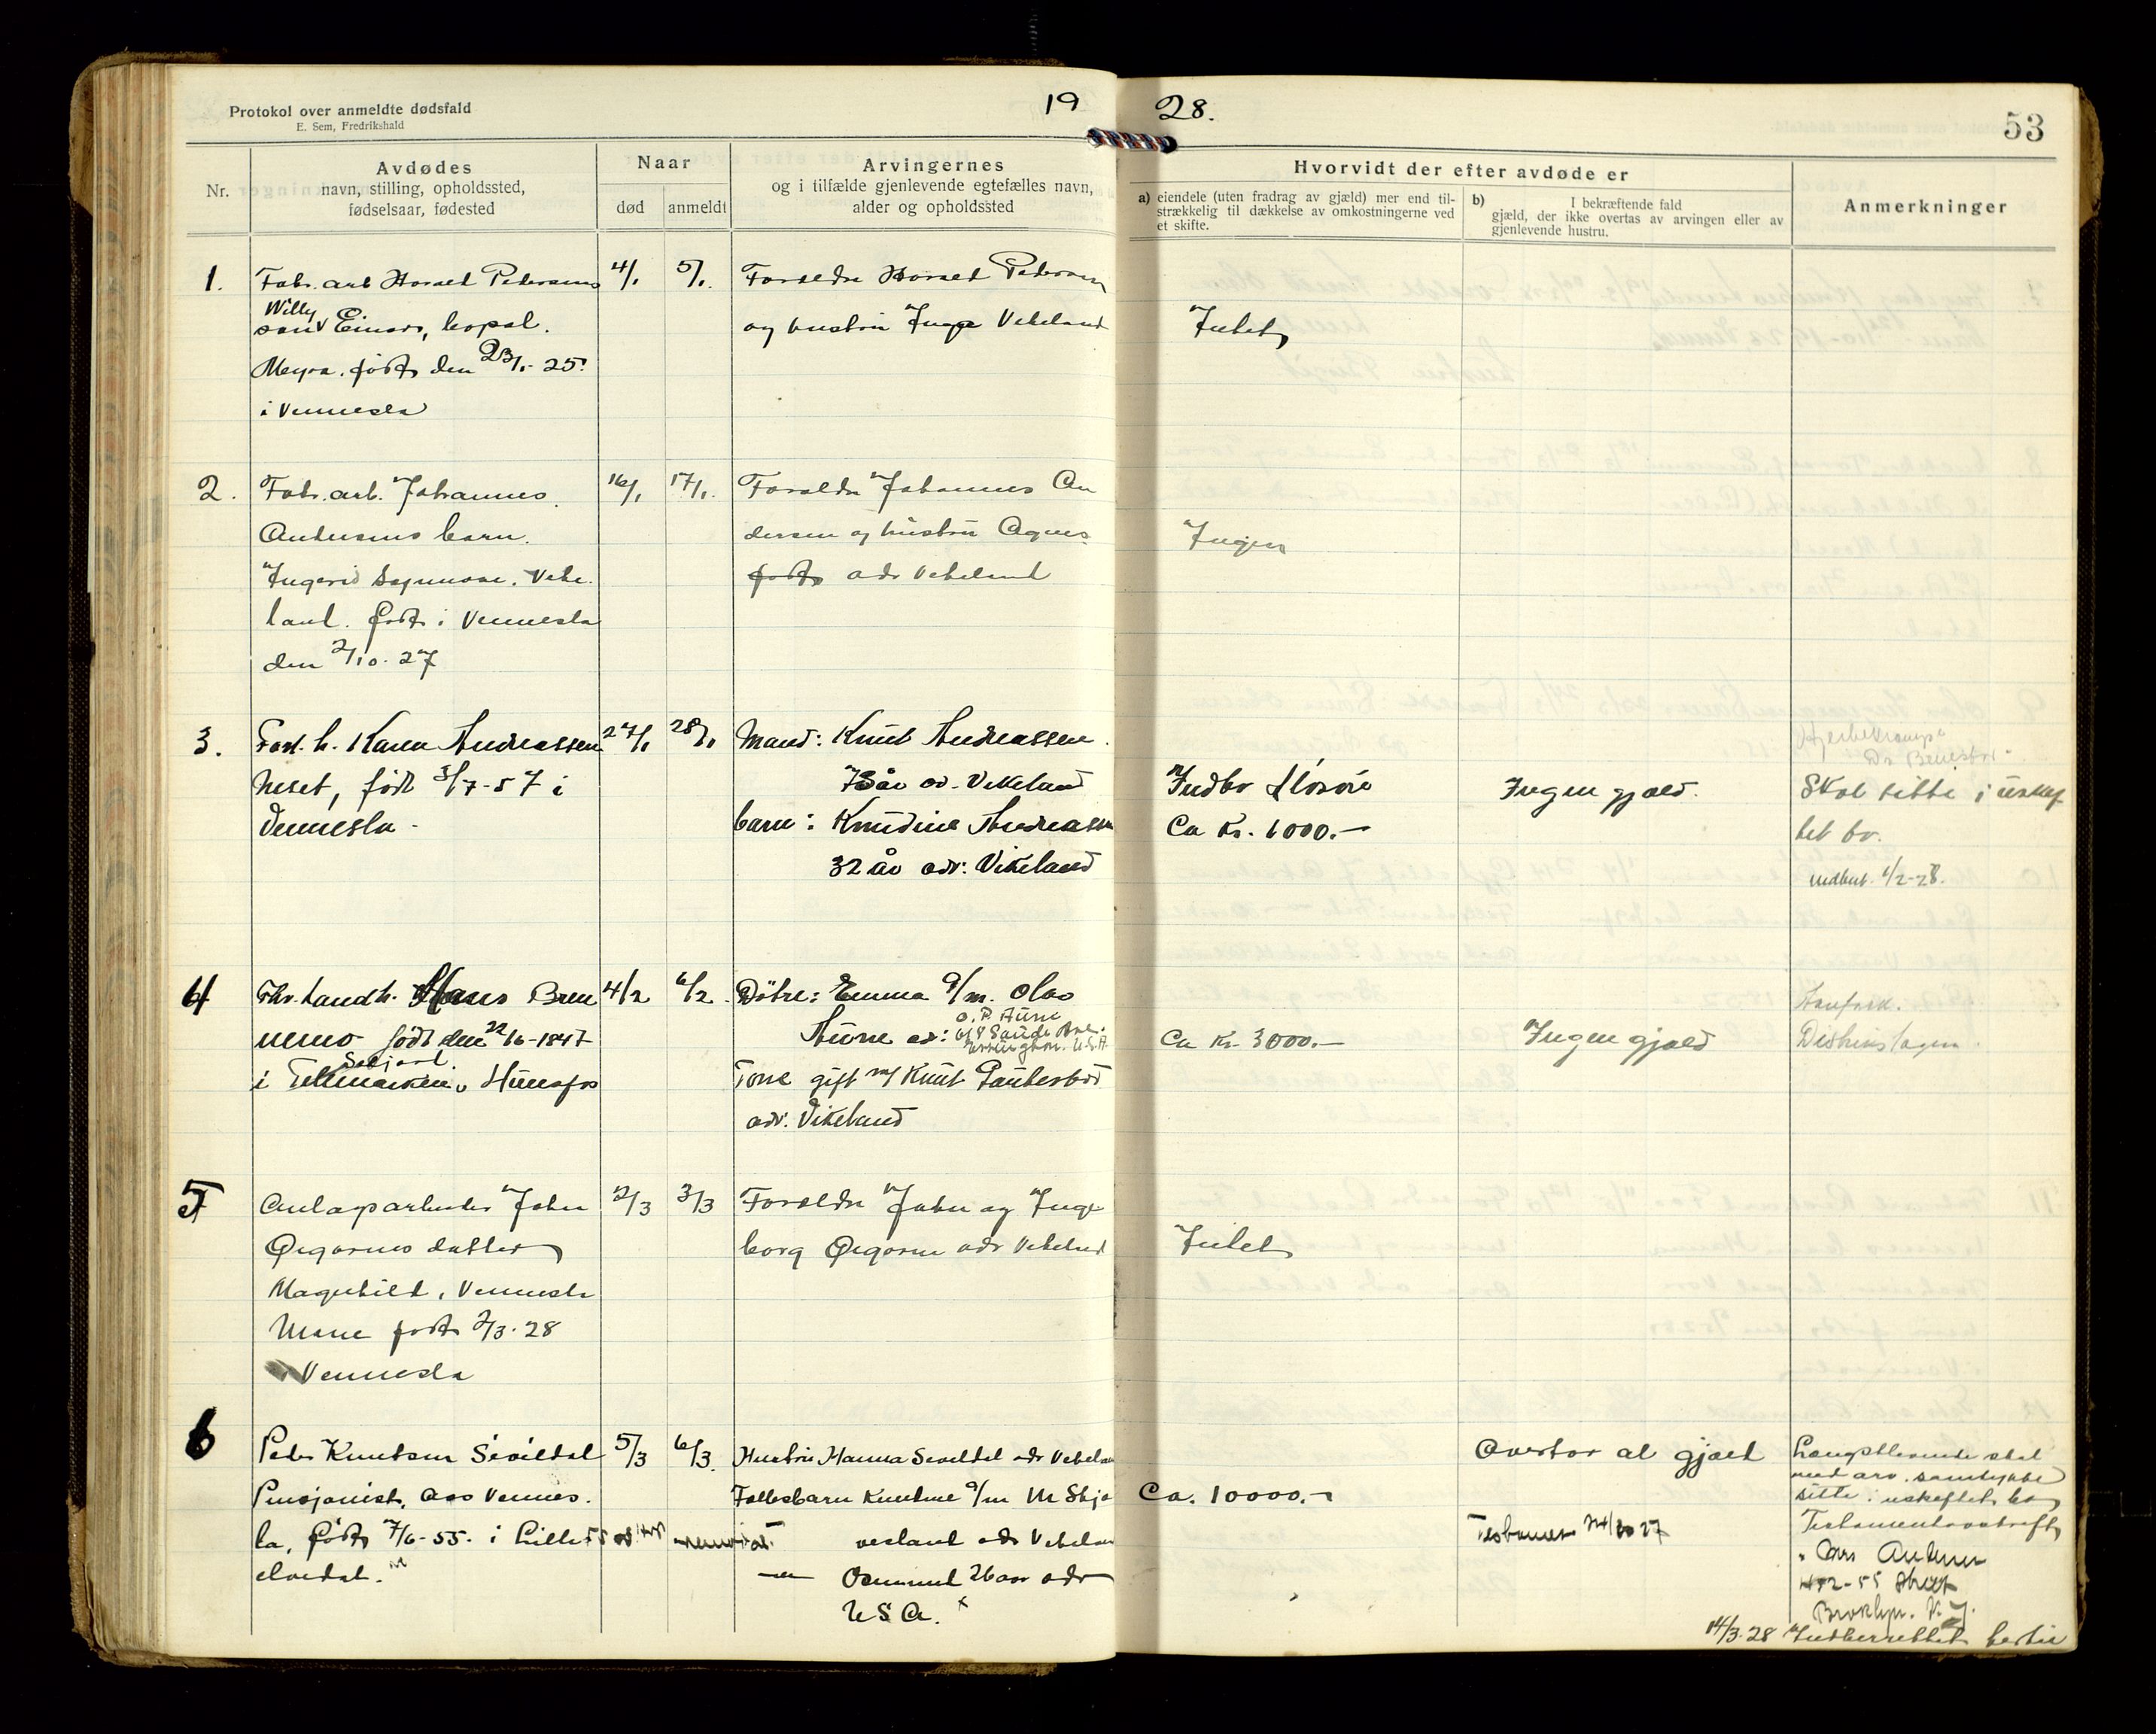 Protokol over anmeldte dødsfald
E. Sem, Fredrikshald
19 28.
53
Nr.
Avdødes
navn, stilling, opholdssted,
fødselsaar, fødested
Naar
død
anmeldt
Arvingernes
og i tilfælde gjenlevende egtefælles navn,
alder og opholdssted
Hvorvidt der efter avdøde er
a) eiendele (uten fradrag av gjæld) mer end til-
strækkelig til dækkelse av omkostningerne ved
et skifte.
b) I bekræftende fald
gjæld, der ikke overtas av arvingen eller av
gjenlevende hustru.
Anmerkninger
1.
Fabr. arb Harald Petersens
Willy
søn Einar, kopal.
Moseid født den 23/1-25
i Vennesla
4/1
5/1.
Foreldre Harald Petersen
og hustru Inga Vikeland
Intet
2.
Fabr. arb. Johannes
Andersens barn.
Ingerid Dagmar, Vike-
land. født i Vennesla
den 2/10. 27
16/1
17/1.
Foreldre Johannes An
dersen og hustru Agnes
født adr Vikeland
Ingen
3.
Karen Andreassen
Neset, født 3/7-57 i
Vennesla.
27/1
28/1
Mand: Knut Andreassen.
73 år ad. Vikeland
barn: Knudine Andreassen
32 år adr: Vikeland
Indbo & løsøre
Ca Kr. 1000.—
Ingen gjæld.
Skal sitte i uskif
tet bo.
indbet. 1/2-28.
4
Fhv. landh. Hans Bren
nemo født den 22/6-1847
Seljord
i Telemarken, Hunsfos
4/2
6/2.
Døtre: Emma g/m. Olav
O. P. Aune
Aune ad:
U.S.A.
Tone gift m/ Knut
adr. Vikeland
Ca Kr. 3000.—
Ingen gjæld
5
Anlægsarbeider John
Øigarens datter
Magnhild, Vennesla
Moane født 2/3.28
i Vennesla
2/3
3/3
Foreldre John og Inge
borg Øigaren adr Vikeland
Intet
6
Peder Knutsen Sirildal
Pensjonist, Aas Vennes.
la, født 7/6-55. i Lille
elvedal.
5/3
6/3.
Hustru Hanna Sirildal adr Vikeland
Fellesbarn Knutine g/m M Skje
vesland adr Vikeland
—"— Osmund 26 aar adr
U S A. x
Ca. 10000.—
Overtar al gjæld
Testament 24/10 27
Længstlevende skal
med arv. samtykke
sitte i uskiftet bo
Testamentavskrift
Brooklyn. N. Y.
14/3.28 Indberettet hertil